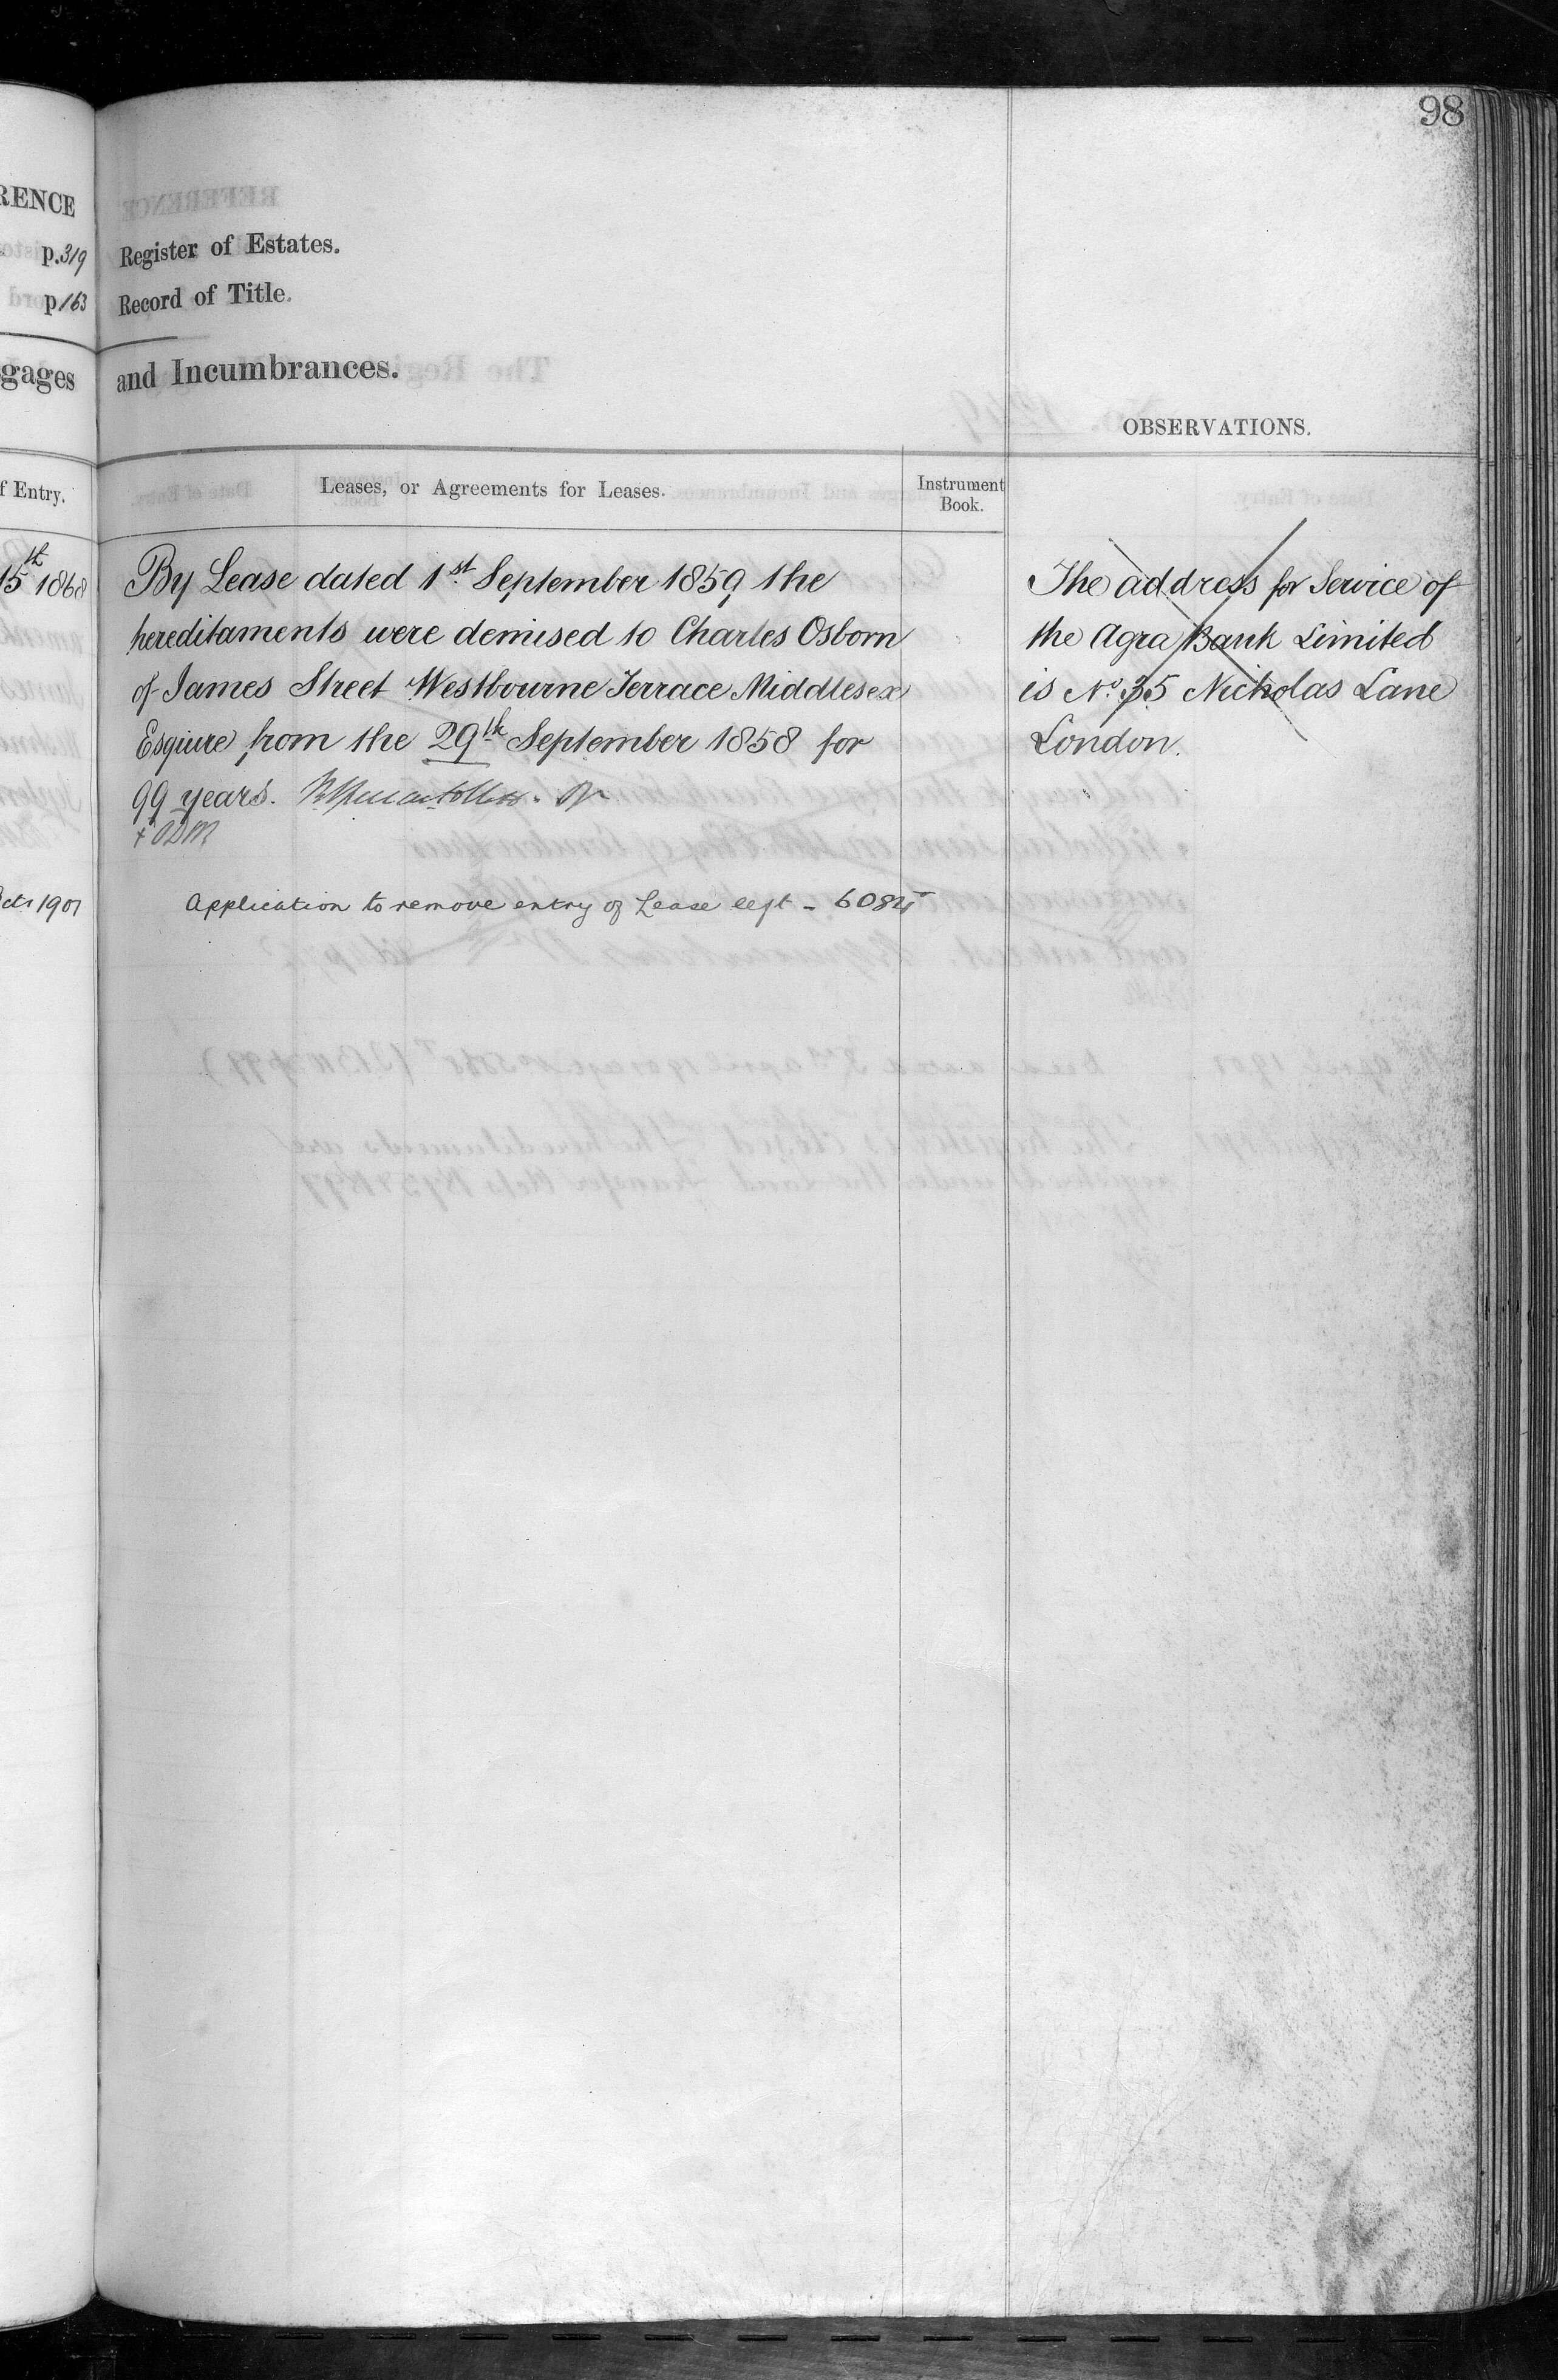 98
RENCE
p. 319 Register of Estates.
p 163 Record of Title.
gages and Incumbrances.
OBSERVATIONS.
f Entry. Leases, or Agreements for Leases. Instrument Book.
15th 1868 By Lease dated 1st September 1859 the
hereditaments were demised to Charles Osborn
of James Street Westbourne Terrace Middlesex
Esquire from the 29th September 1858 for
99 years.
Application to remove entry of Lease left - 6084
1901
The address for Service of
the Agra Bank Limited
is No. 35 Nicholas Lane
London.